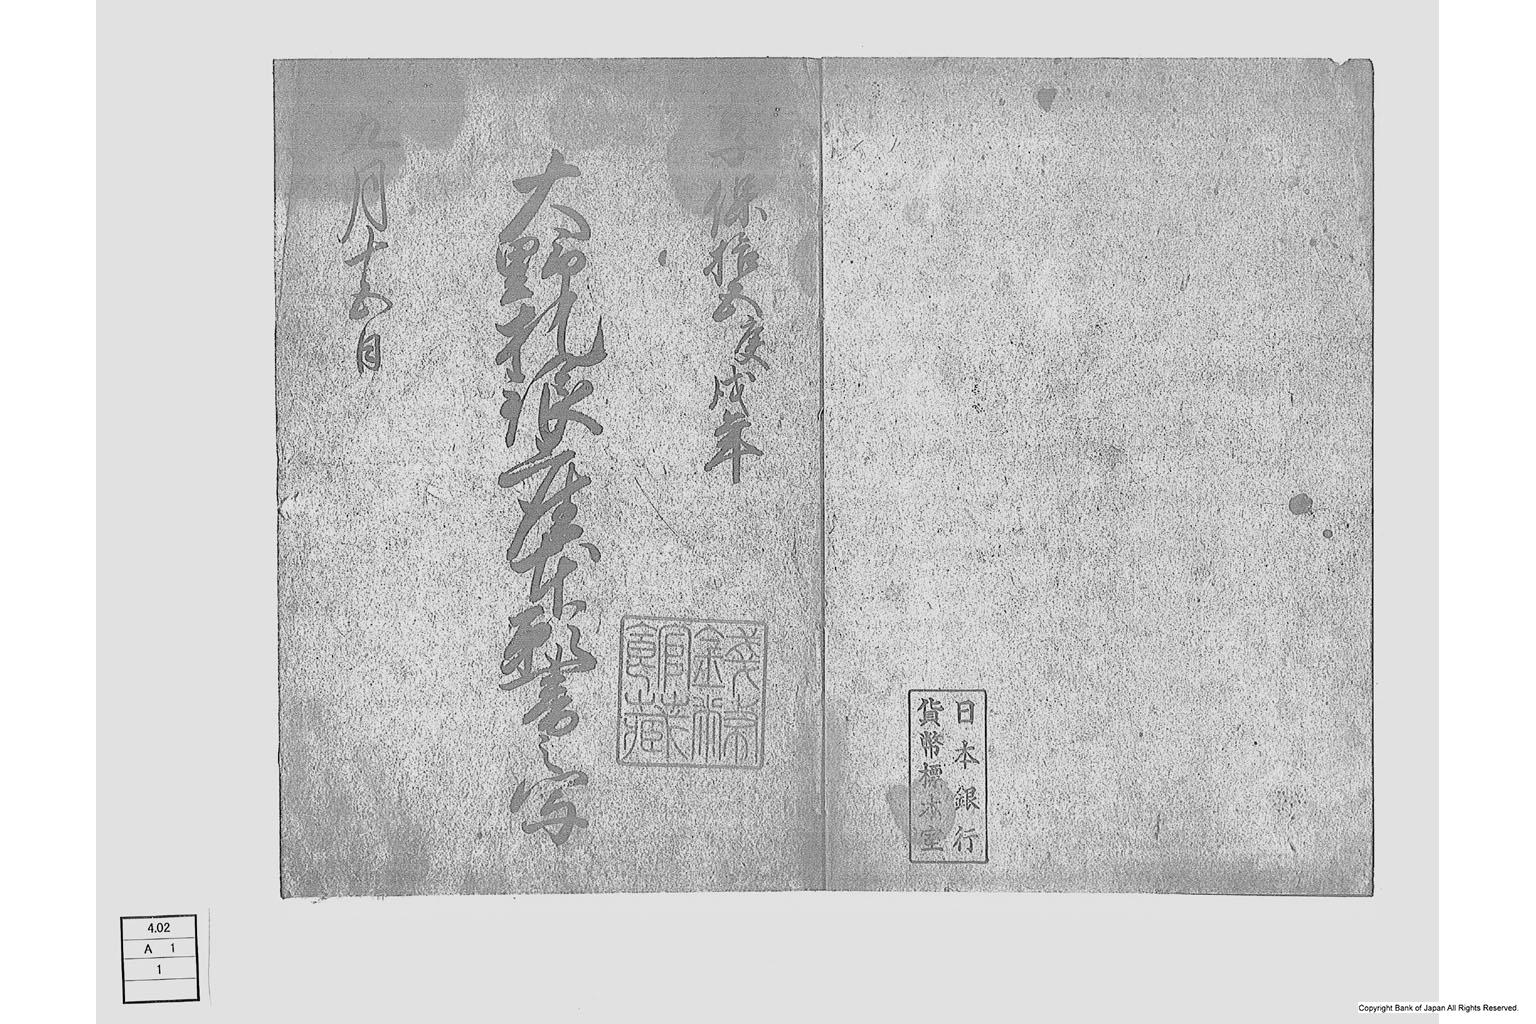 日本銀行
貨幣標本室
享保拾五庚戌年
大野札浪座本形書之写
銭幣館蔵
九月十五日
4.02
A 1
1
Copyright Bank of Japan All Rights Reserved.